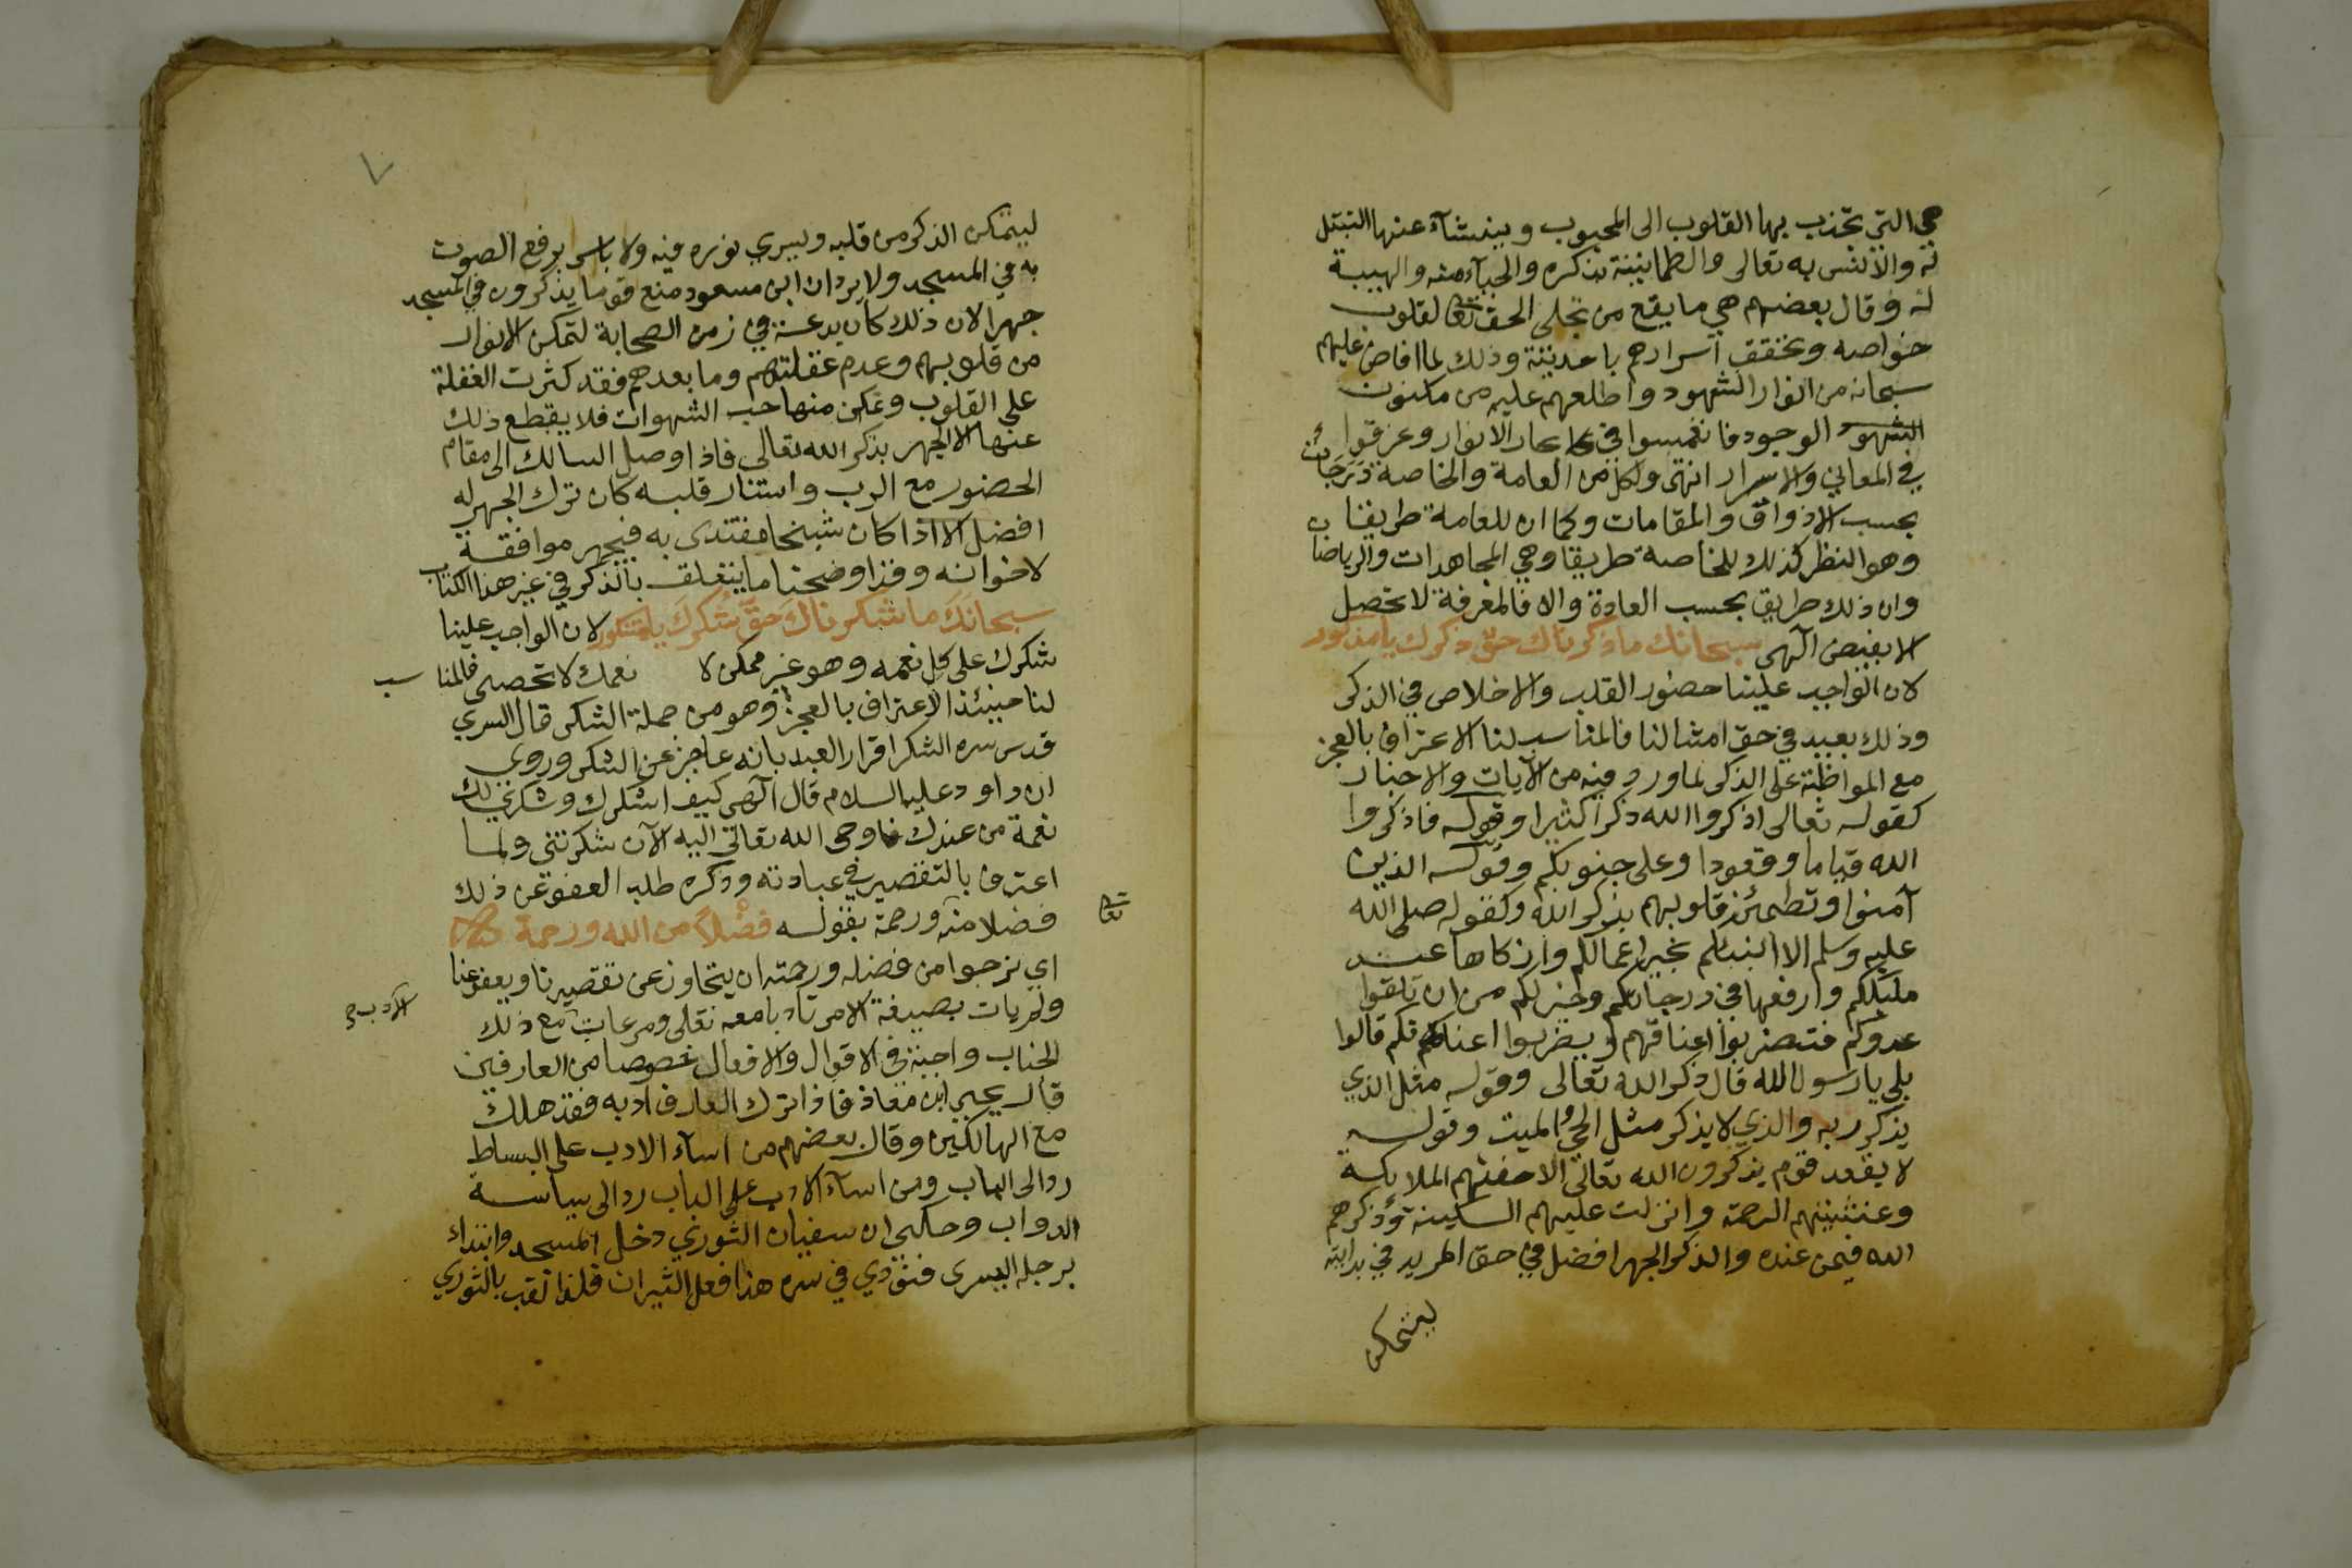 هي التي تجذب بها القلوب الى المحبوب وينشآء عنها التبتل
له والانس به تعالى والطمانينة بذكره والحيآء منه والهيبة
له وقال بعضهم هي ما يقع من تجلى الحق تعالى لقلوب
خواصه وتحقق اسرارهم باحديته وذلك لما افاض عليهم
سبحانه من انوار الشهود واطلعهم عليه من مكنون
الشهود الوجود فانغمسوا في بحار الانوار وغرقوا
في المعاني والاسرار انتهى ولكل من العامة والخاصة درجات
بحسب الاذواق والمقامات وكما ان للعامة طريقا
وهو النظر كذلك للخاصة طريقا وهي المجاهدات والرياضات
وان ذلك طريق بحسب العادة والا فالمعرفة لا تحصل
الا بفيض آلهى سبحانك ما ذكرناك حق ذكرك يا مذكور
لان الواجب علينا حضور القلب والاخلاص في الذكر
وذلك بعيد في حق امثالنا فالمناسب لنا الاعتراف بالعجز
مع المواظبة على الذكر لما ورد فيه من الآيات والاخبار
كقوله تعالى اذكروا الله ذكرا كثيرا وقوله فاذكروا
الله قياما وقعودا وعلى جنوبكم وقوله الذين
آمنوا وتطمئن قلوبهم بذكر الله وكقوله صلى الله
عليه وسلم الا انبئكم بخير اعمالكم وازكاها عند
مليككم وارفعها في درجاتكم وخير لكم من ان تلقوا
عدوكم فتضربوا اعناقهم ويضربوا اعناقكم قالوا
بلى يا رسول الله قال ذكر الله تعالى وقوله مثل الذي
يذكر ربه والذي لا يذكر مثل الحي والميت وقوله
لا يقعد قوم يذكرون الله تعالى الا حفتهم الملائكة
وغشيتهم الرحمة وانزلت عليهم السكينة وذكرهم
الله فيمن عنده والذكر الجهر افضل في حق المريد في بدايته
ليتمكن
٧
ليتمكن الذكر من قلبه ويسري نوره فيه ولا باس برفع الصوت
به في المسجد ولا يرد ان ابن مسعود منع قوما يذكرون في المسجد
جهرا لان ذلك كان بدعة في زمن الصحابة لتمكن الانوار
من قلوبهم وعدم غفلتهم وما بعدهم فقد كثرت الغفلة
على القلوب وتمكن منها حب الشهوات فلا يقطع ذلك
عنها الا الجهر بذكر الله تعالى فاذا وصل السالك الى مقام
الحضور مع الرب واستنار قلبه كان ترك الجهر له
افضل الا اذا كان شيخا مقتدى به فيجهر موافقة
لاخوانه وقد اوضحنا ما يتعلق بالذكر في غير هذا الكتاب
سبحانك ما شكرناك حق شكرك يا مشكور لان الواجب علينا
شكرك على كل نعمه وهو غير ممكن لا نعمك لا تحصى فالمناسب
لنا حينئذ الاعتراف بالعجز وهو من جملة الشكر قال السري
قدس سره الشكر اقرار العبد بانه عاجز عن الشكر وروى
ان داود عليه السلام قال آلهى كيف اشكرك وشكري لك
نعمة من عندك فاوحى الله تعالى اليه الآن شكرتني ولما
اعترف بالتقصير في عبادته وذكره طلب العفو عن ذلك
فضلا منه ورحمة بقوله فضلا من الله ورحمة
تعالى
اي نرجوا من فضله ورحمته ان يتجاوز عن تقصيرنا ويعفو عنا
ولم يات بصيغة الامر تادبا معه تعالى ومراعات مع ذلك
الادب
الجناب واجبة في الاقوال والافعال خصوصا من العارفين
قال يحيى ابن معاذ فاذا ترك العارف ادبه فقد هلك
مع الهالكين وقال بعضهم من اسآء الادب على البساط
رد الى الباب ومن اسآء الادب على الباب رد الى سياسة
الدواب وحكي ان سفيان الثوري دخل المسجد وابتداء
برجله اليسرى فنودي في سره هذا فعل الثيران فلذا لقب بالثوري